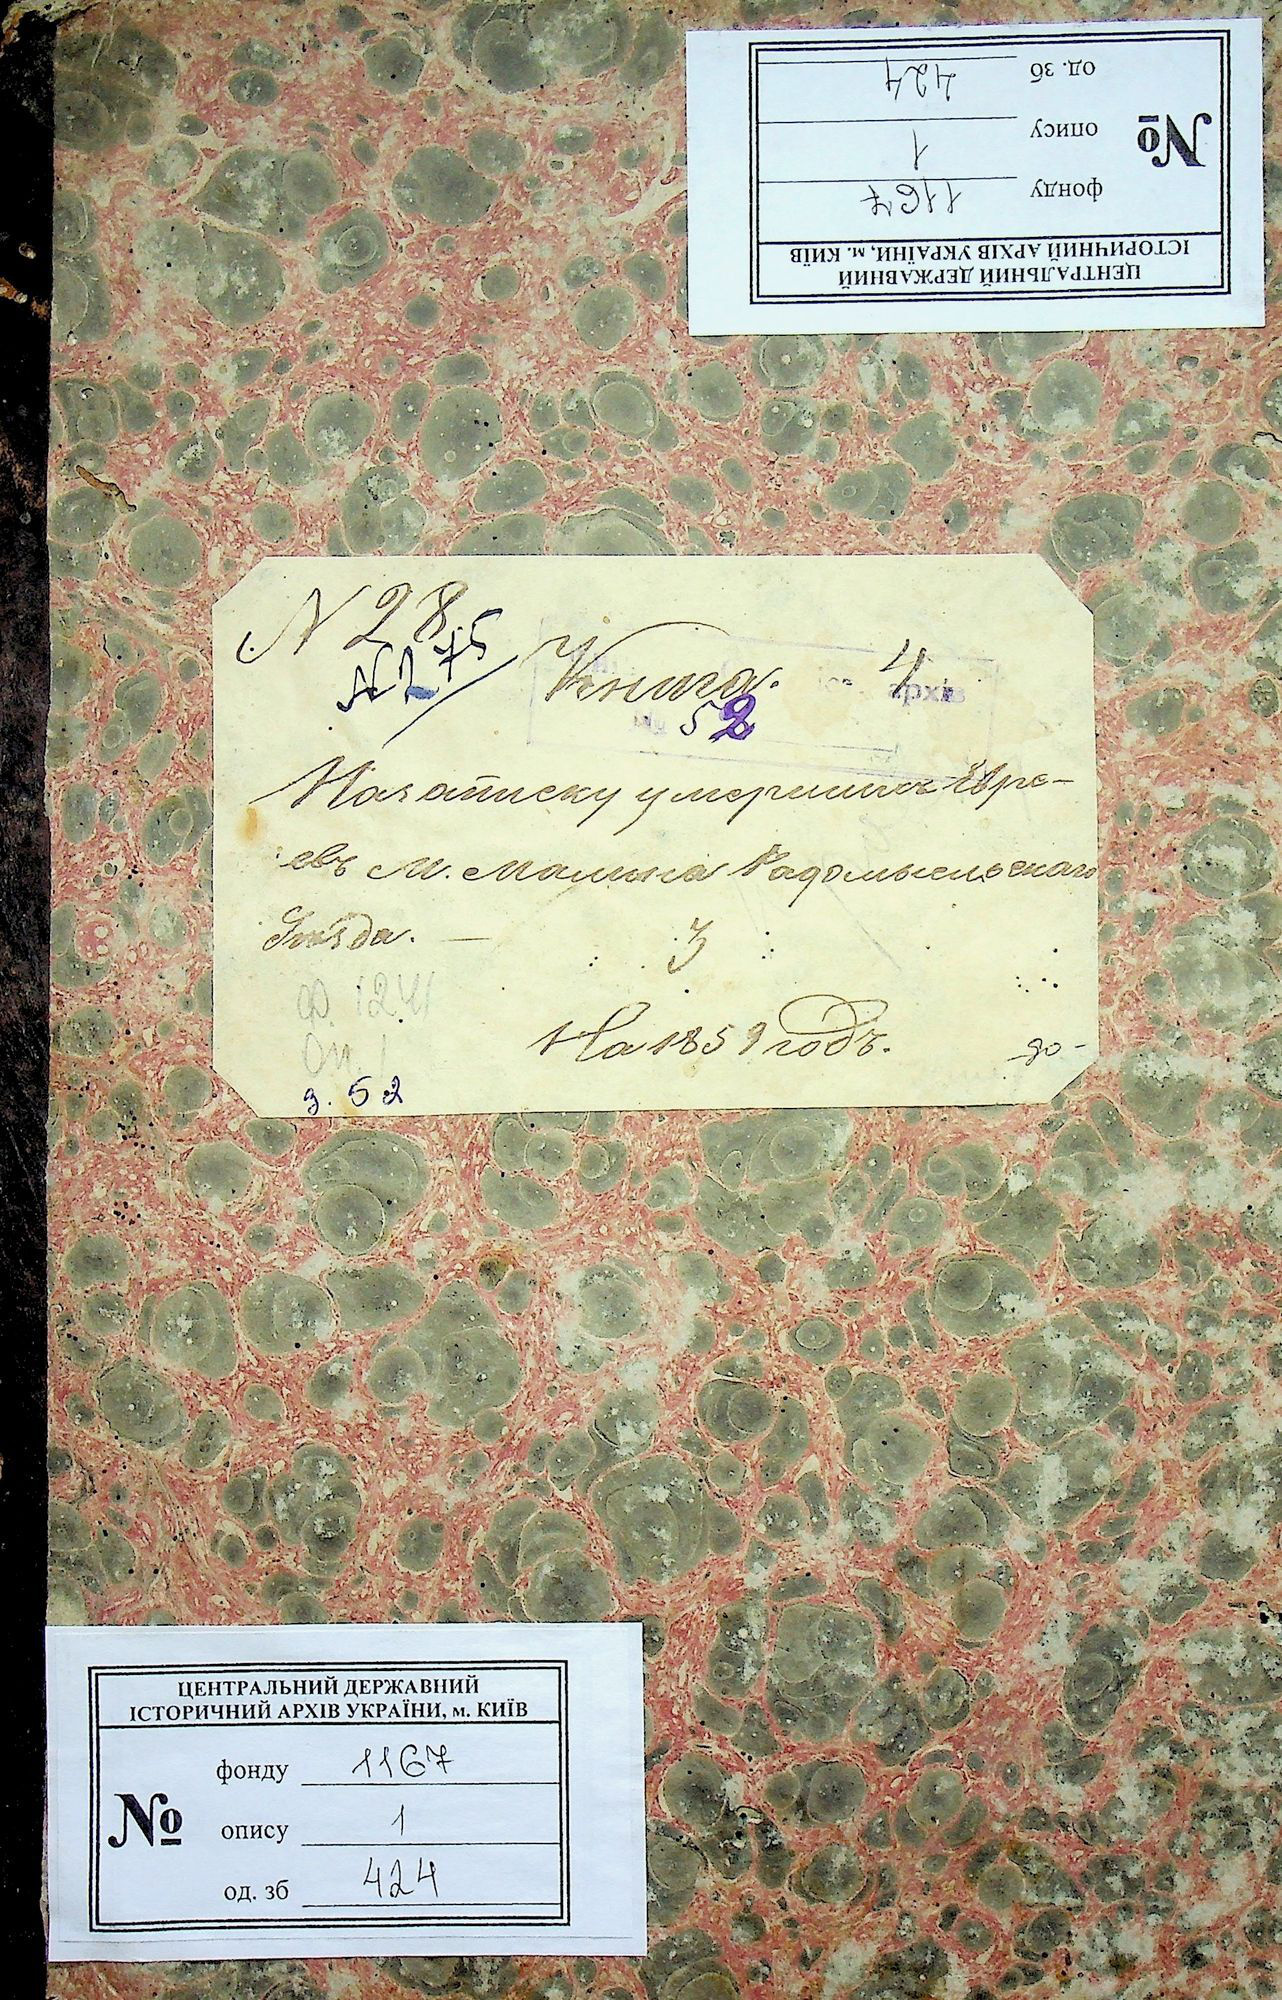 ЦЕНТРАЛЬНИЙ ДЕРЖАВНИЙ
ІСТОРИЧНИЙ АРХІВ УКРАЇНИ, м. КИЇВ
№
фонду 1167
опису 1
од. зб 424
N 28
N 275
Книга. 4
архів
52
На записку умершихъ Евре-
евъ м. Малина Радомысльскаго
Уѣзда. — 3
ф. 1241
Оп. 1
На 1859 годъ.
90 -
з. 52
ЦЕНТРАЛЬНИЙ ДЕРЖАВНИЙ
ІСТОРИЧНИЙ АРХІВ УКРАЇНИ, м. КИЇВ
фонду 1167
№
опису 1
од. зб 424